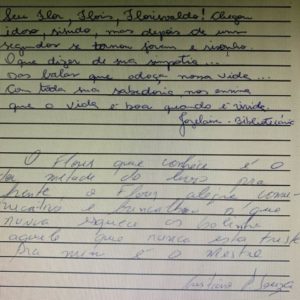 Seu Flor, Floris, Florisvaldo! Chegou
idoso, sisudo, mas depois de uns
segundos se tornou jovem e risonho.
O que dizer de sua simpatia...
das balas que adoça nossa vida...
Com toda sua sabedoria nos ensina
que a vida é boa quando é vivida.
Joselaine - Bibliotecária
O Floris que conheço é o
da metade do livro pra
frente o Floris alegre comu-
nicativo e brincalhão o que
nunca esquece as balinhas
aquele que nunca está triste
Pra mim é o Mestre
Souza